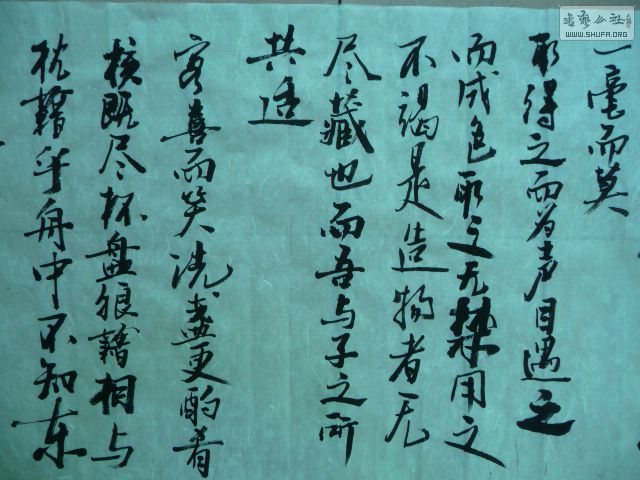 一毫而莫
耳得之而为声目遇之
而成色取之无禁用之
不竭是造物者无
尽藏也而吾与子之所
共适
客喜而笑洗盏更酌肴
核既尽杯盘狼藉相与
枕藉乎舟中不知东
书艺公社
WWW.SHUFA.ORG